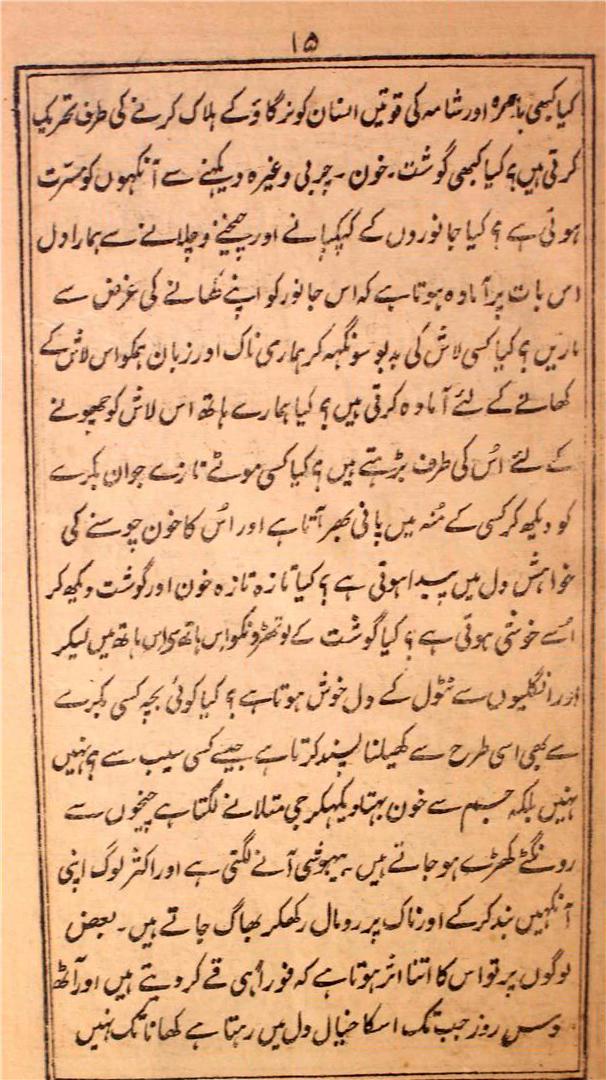 ۱۵
کیا کبھی باصرہ اور شامہ کی قوتیں انسان کو نرگاؤ کے ہلاک کرنے کی طرف تحریک
کرتی ہیں؟ کیا کبھی گوشت۔ خون۔ چربی وغیرہ دیکہنے سے آنکہوں کو مسرت
ہوتی ہے؟ کیا جانوروں کے کپکپانے اور چیخنے وچلانے سے ہمارا دل
اس بات پر آمادہ ہوتا ہے کہ اس جانور کو اپنے کھانے کی غرض سے
ماریں؟ کیا کسی لاش کی بدبو سونگہہ کر ہماری ناک اور زبان ہمکو اس لاش کے
کھانے کے لئے آمادہ کرتی ہیں؟ کیا ہمارے ہاتھ اس لاش کو چھونے
کے لئے اُس کی طرف بڑہتے ہیں؟ کیا کسی موٹے تازے جوان بکرے
کو دیکھ کر کسی کے مُنہ میں پانی بھر آتا ہے اور اُس کا خون چوسنے کی
خواہش دل میں پیدا ہوتی ہے؟ کیا تازہ تازہ خون اور گوشت دیکھ کر
اُسے خوشی ہوتی ہے؟ کیا گوشت کے لوتھڑونکو اِس ہاتھ سے اس ہاتھ میں لیکر
اور انگلیوں سے ٹٹول کے دل خوش ہوتا ہے؟ کیا کوئی بچہ کسی بکرے
سے بھی اسی طرح سے کھیلنا پسند کرتا ہے جیسے کسی سیب سے؟ نہیں
نہیں بلکہ جسم سے خون بہتا دیکہکر جی متلانے لگتا ہے چیخوں سے
رونگٹے کھڑے ہو جاتے ہیں۔ بیہوشی آنے لگتی ہے اور اکثر لوگ اپنی
آنکہیں بند کرکے اور ناک پر رومال رکھکر بھاگ جاتے ہیں۔ بعض
لوگوں پر تو اس کا اتنا اثر ہوتا ہے کہ فوراً ہی قے کر دیتے ہیں اور آٹھ
دس روز جب تک اسکا خیال دل میں رہتا ہے کھانا تک نہیں